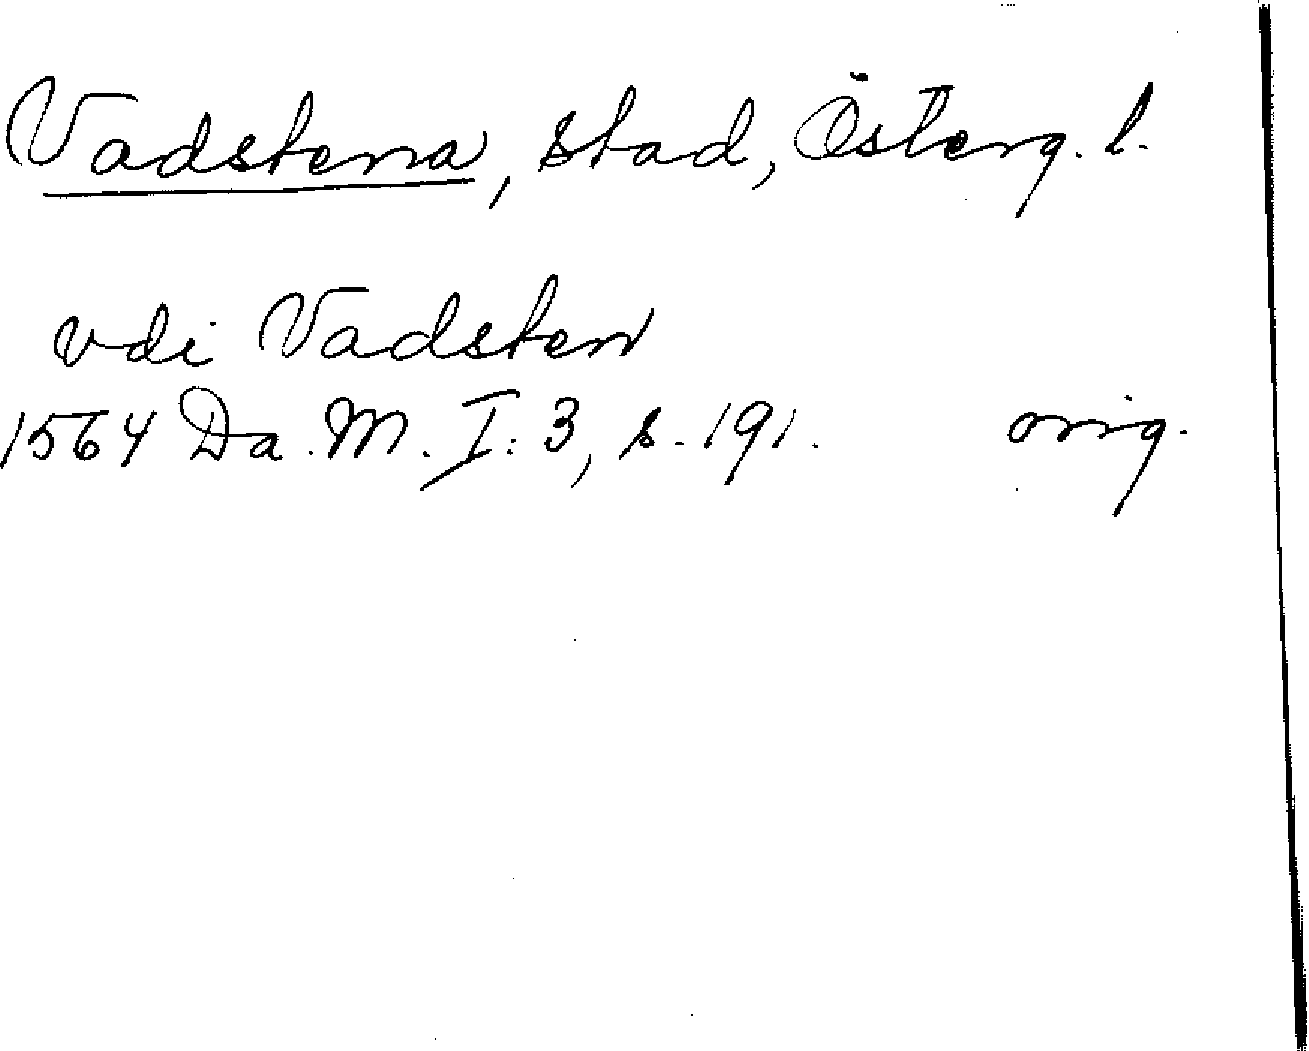 Vadstena, stad, Österg. l.
vdi Vadsten
1564 Da. M. I: 3, s. 191. orig.